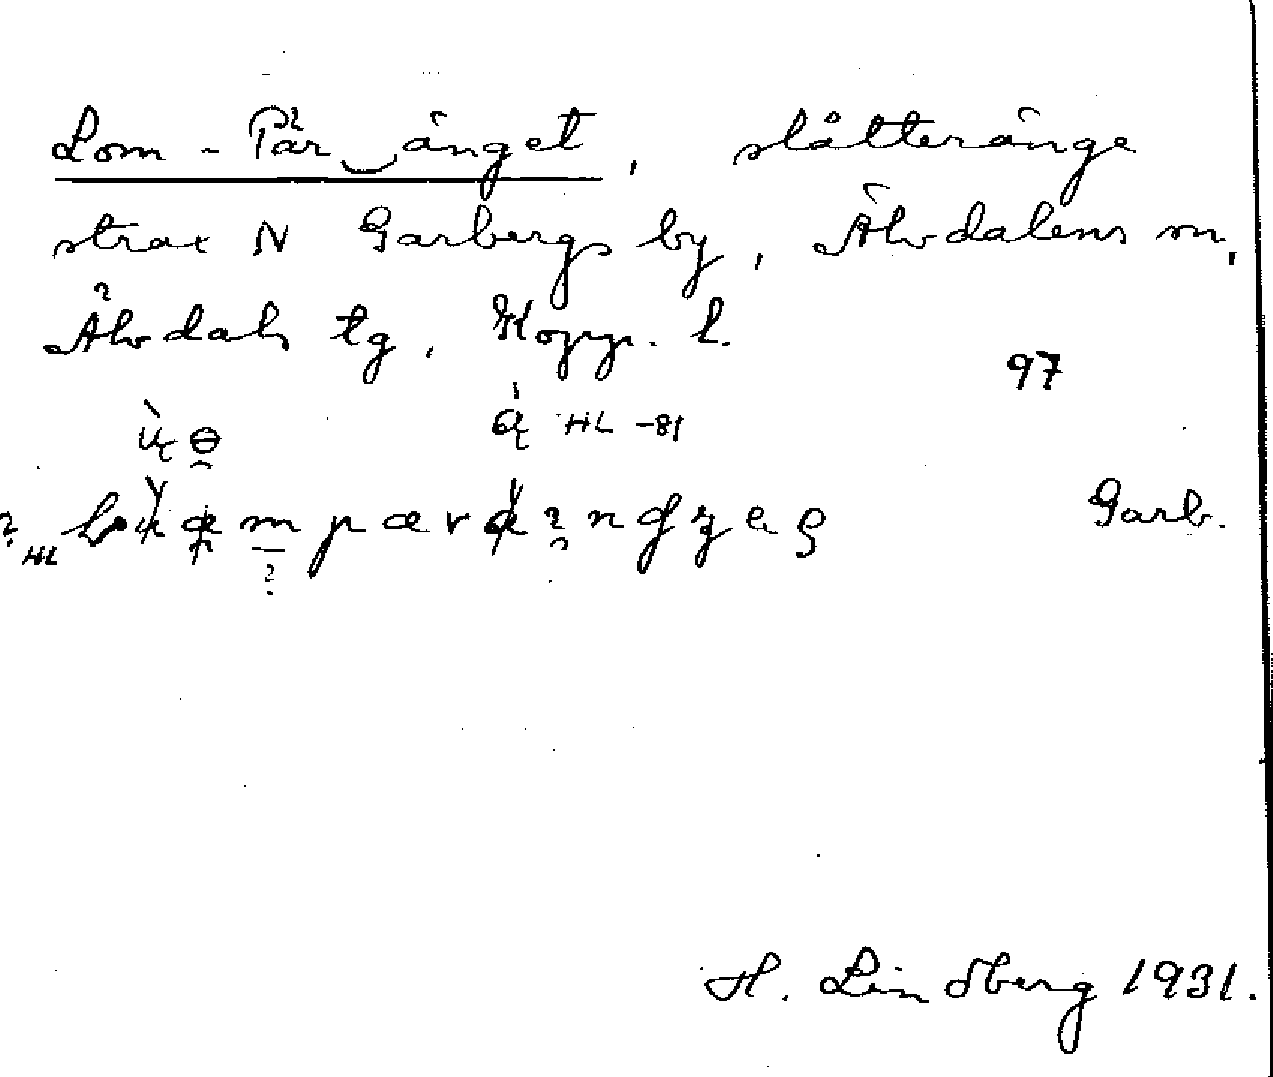 Lom-Pär änget, slåtteränge
strax N Garbergs by, Älvdalens sn,
Älvdals tg, Kopp. l.
97
HL -81
Garb.
HL
H. Lindberg 1931.